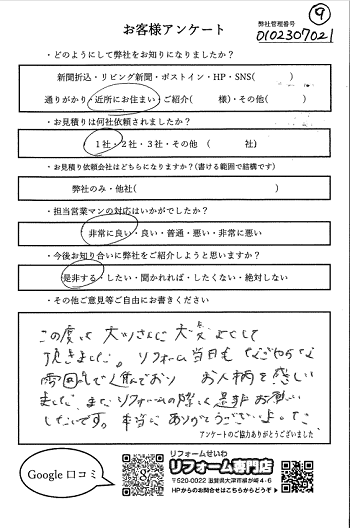 ⑨
お客様アンケート
弊社管理番号
0102307021
・どのようにして弊社をお知りになりましたか？
新聞折込・リビング新聞・ポストイン・HP・SNS( )
通りがかり・近所にお住まい・ご紹介( 様)・その他( )
・お見積りは何社依頼されましたか？
1社・2社・3社・その他 ( 社)
・お見積り依頼会社はどちらになりますか？(書ける範囲で結構です)
弊社のみ・他社( )
・担当営業マンの対応はいかがでしたか？
非常に良い・良い・普通・悪い・非常に悪い
・今後お知り合いに弊社をご紹介しようと思いますか？
是非する・したい・聞かれれば・したくない・絶対しない
・その他ご意見等ご自由にお書きください
この度は 大川さんに 大変 よくして
頂きました。リフォーム当日も なごやかな
雰囲気で進んでおり お人柄を感じ
ました。また リフォームの際は 是非お願い
したいです。本当に ありがとうございました。
アンケートのご協力ありがとうございました
Google 口コミ
リフォームせいわ
リフォーム専門店
〒520-0022 滋賀県大津市柳が崎4-6
HPからのお問合せはこちらからどうぞ